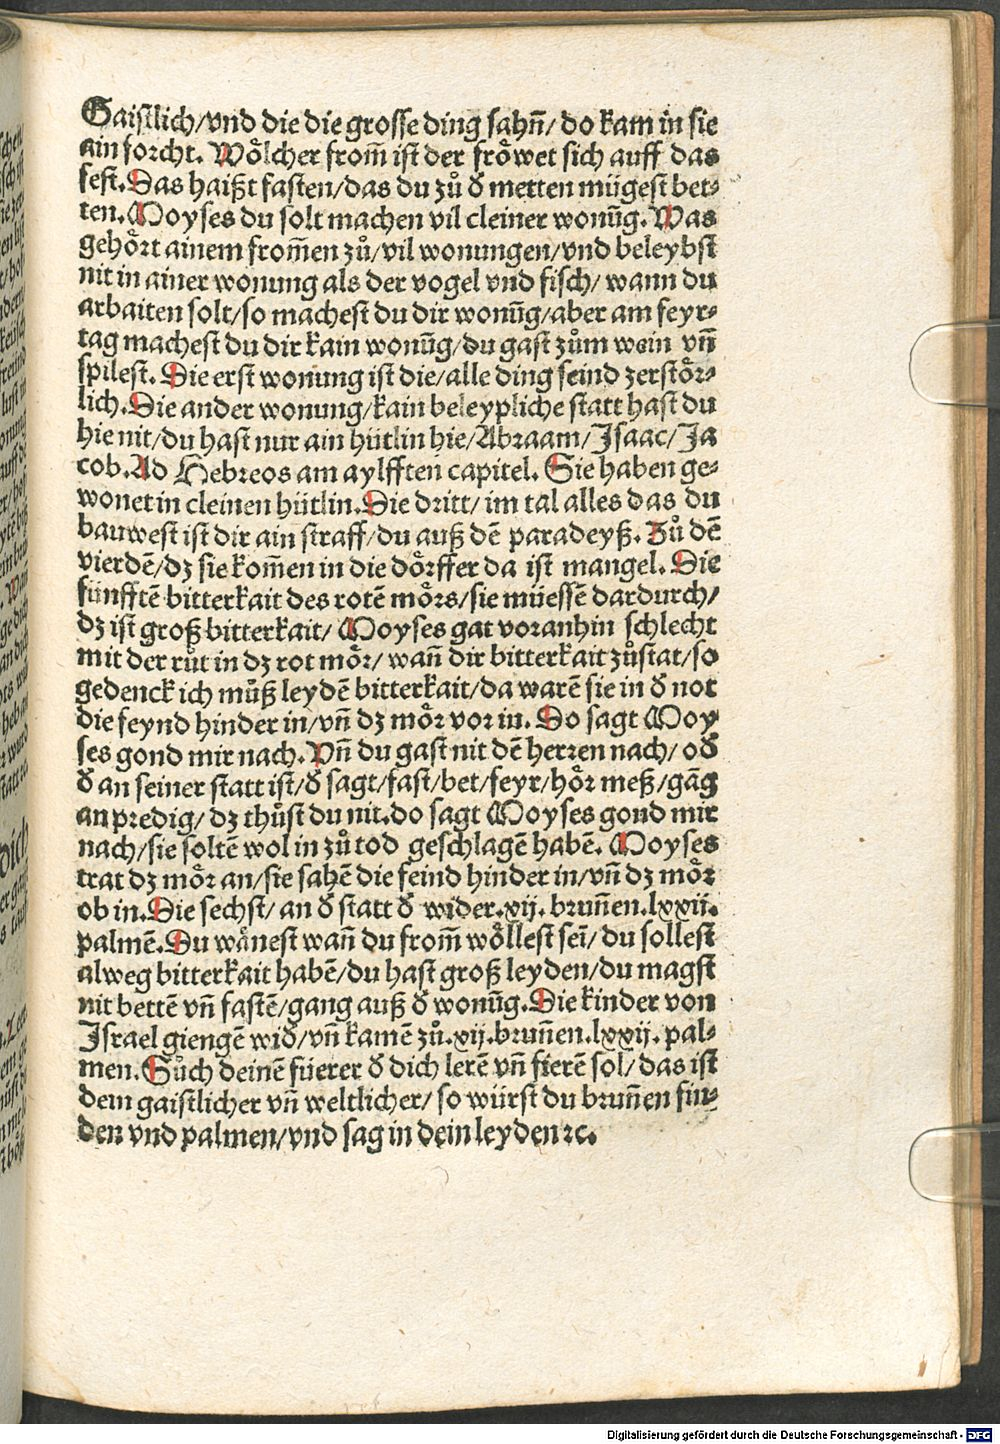 Gaistlich/vnd die die grosse ding sahn̄/ do kam in sie
ain forcht. Woͤlcher from̄ ist der froͤwet sich auff das
fest. Das haißt fasten/das du zuͦ ð metten mügest bet⸗
ten. Moyses du solt machen vil cleiner wonūg. Was
gehoͤrt ainem from̄en zuͦ/vil wonungen/vnd beleybst
nit in ainer wonung als der vogel vnd fisch/ wann du
arbaiten solt/so machest du dir wonūg/aber am feyr⸗
tag machest du dir kain wonūg/du gast zuͦm wein vn̄
spilest. Die erst wonung ist die/alle ding seind zerstoͤr⸗
lich. Die ander wonung/kain beleypliche statt hast du
hie nit/du hast nur ain hütlin hie/Abraam/Isaac/Ja
cob. Ad Hebreos am aylfften capitel. Sie haben ge⸗
wonet in cleinen hütlin. Die dritt/ im tal alles das du
bauwest ist dir ain straff/du auß dē paradeyß. Zuͦ dē
vierdē/dz sie kom̄en in die doͤrffer da ist mangel. Die
fünfftē bitterkait des rotē moͤrs/sie müessē dardurch/
dz ist groß bitterkait/ Moyses gat voranhin schlecht
mit der ruͦt in dz rot moͤr/ wan̄ dir bitterkait zuͦstat/so
gedenck ich muͦß leydē bitterkait/da warē sie in ð not
die feynd hinder in/vn̄ dz moͤr vor in. Do sagt Moy
ses gond mir nach. Vn̄ du gast nit dē herren nach/ oð
ð an seiner statt ist/ð sagt/fast/bet/feyr/hoͤr meß/gāg
an predig/ dz thuͦst du nit. do sagt Moyses gond mir
nach/sie soltē wol in zuͦ tod geschlagē habē. Moyses
trat dz moͤr an/sie sahē die feind hinder in/vn̄ dz moͤr
ob in. Die sechst/ an ð statt ð wider.xij. brun̄en.lxxii.
palmē. Du waͤnest wan̄ du from̄ woͤllest sei̅/ du sollest
alweg bitterkait habē/du hast groß leyden/du magst
nit bettē vn̄ fastē/gang auß ð wonūg. Die kinder von
Israel giengē wið/vn̄ kamē zuͦ.xij.brun̄en.lxxij. pal⸗
men. Suͦch deinē füerer ð dich lerē vn̄ fierē sol/das ist
dem gaistlicher vn̄ weltlicher/ so würst du brun̄en fin⸗
den vnd palmen/vnd sag in dein leyden ꝛc.
Digitalisierung gefördert durch die Deutsche Forschungsgemeinschaft - DFG